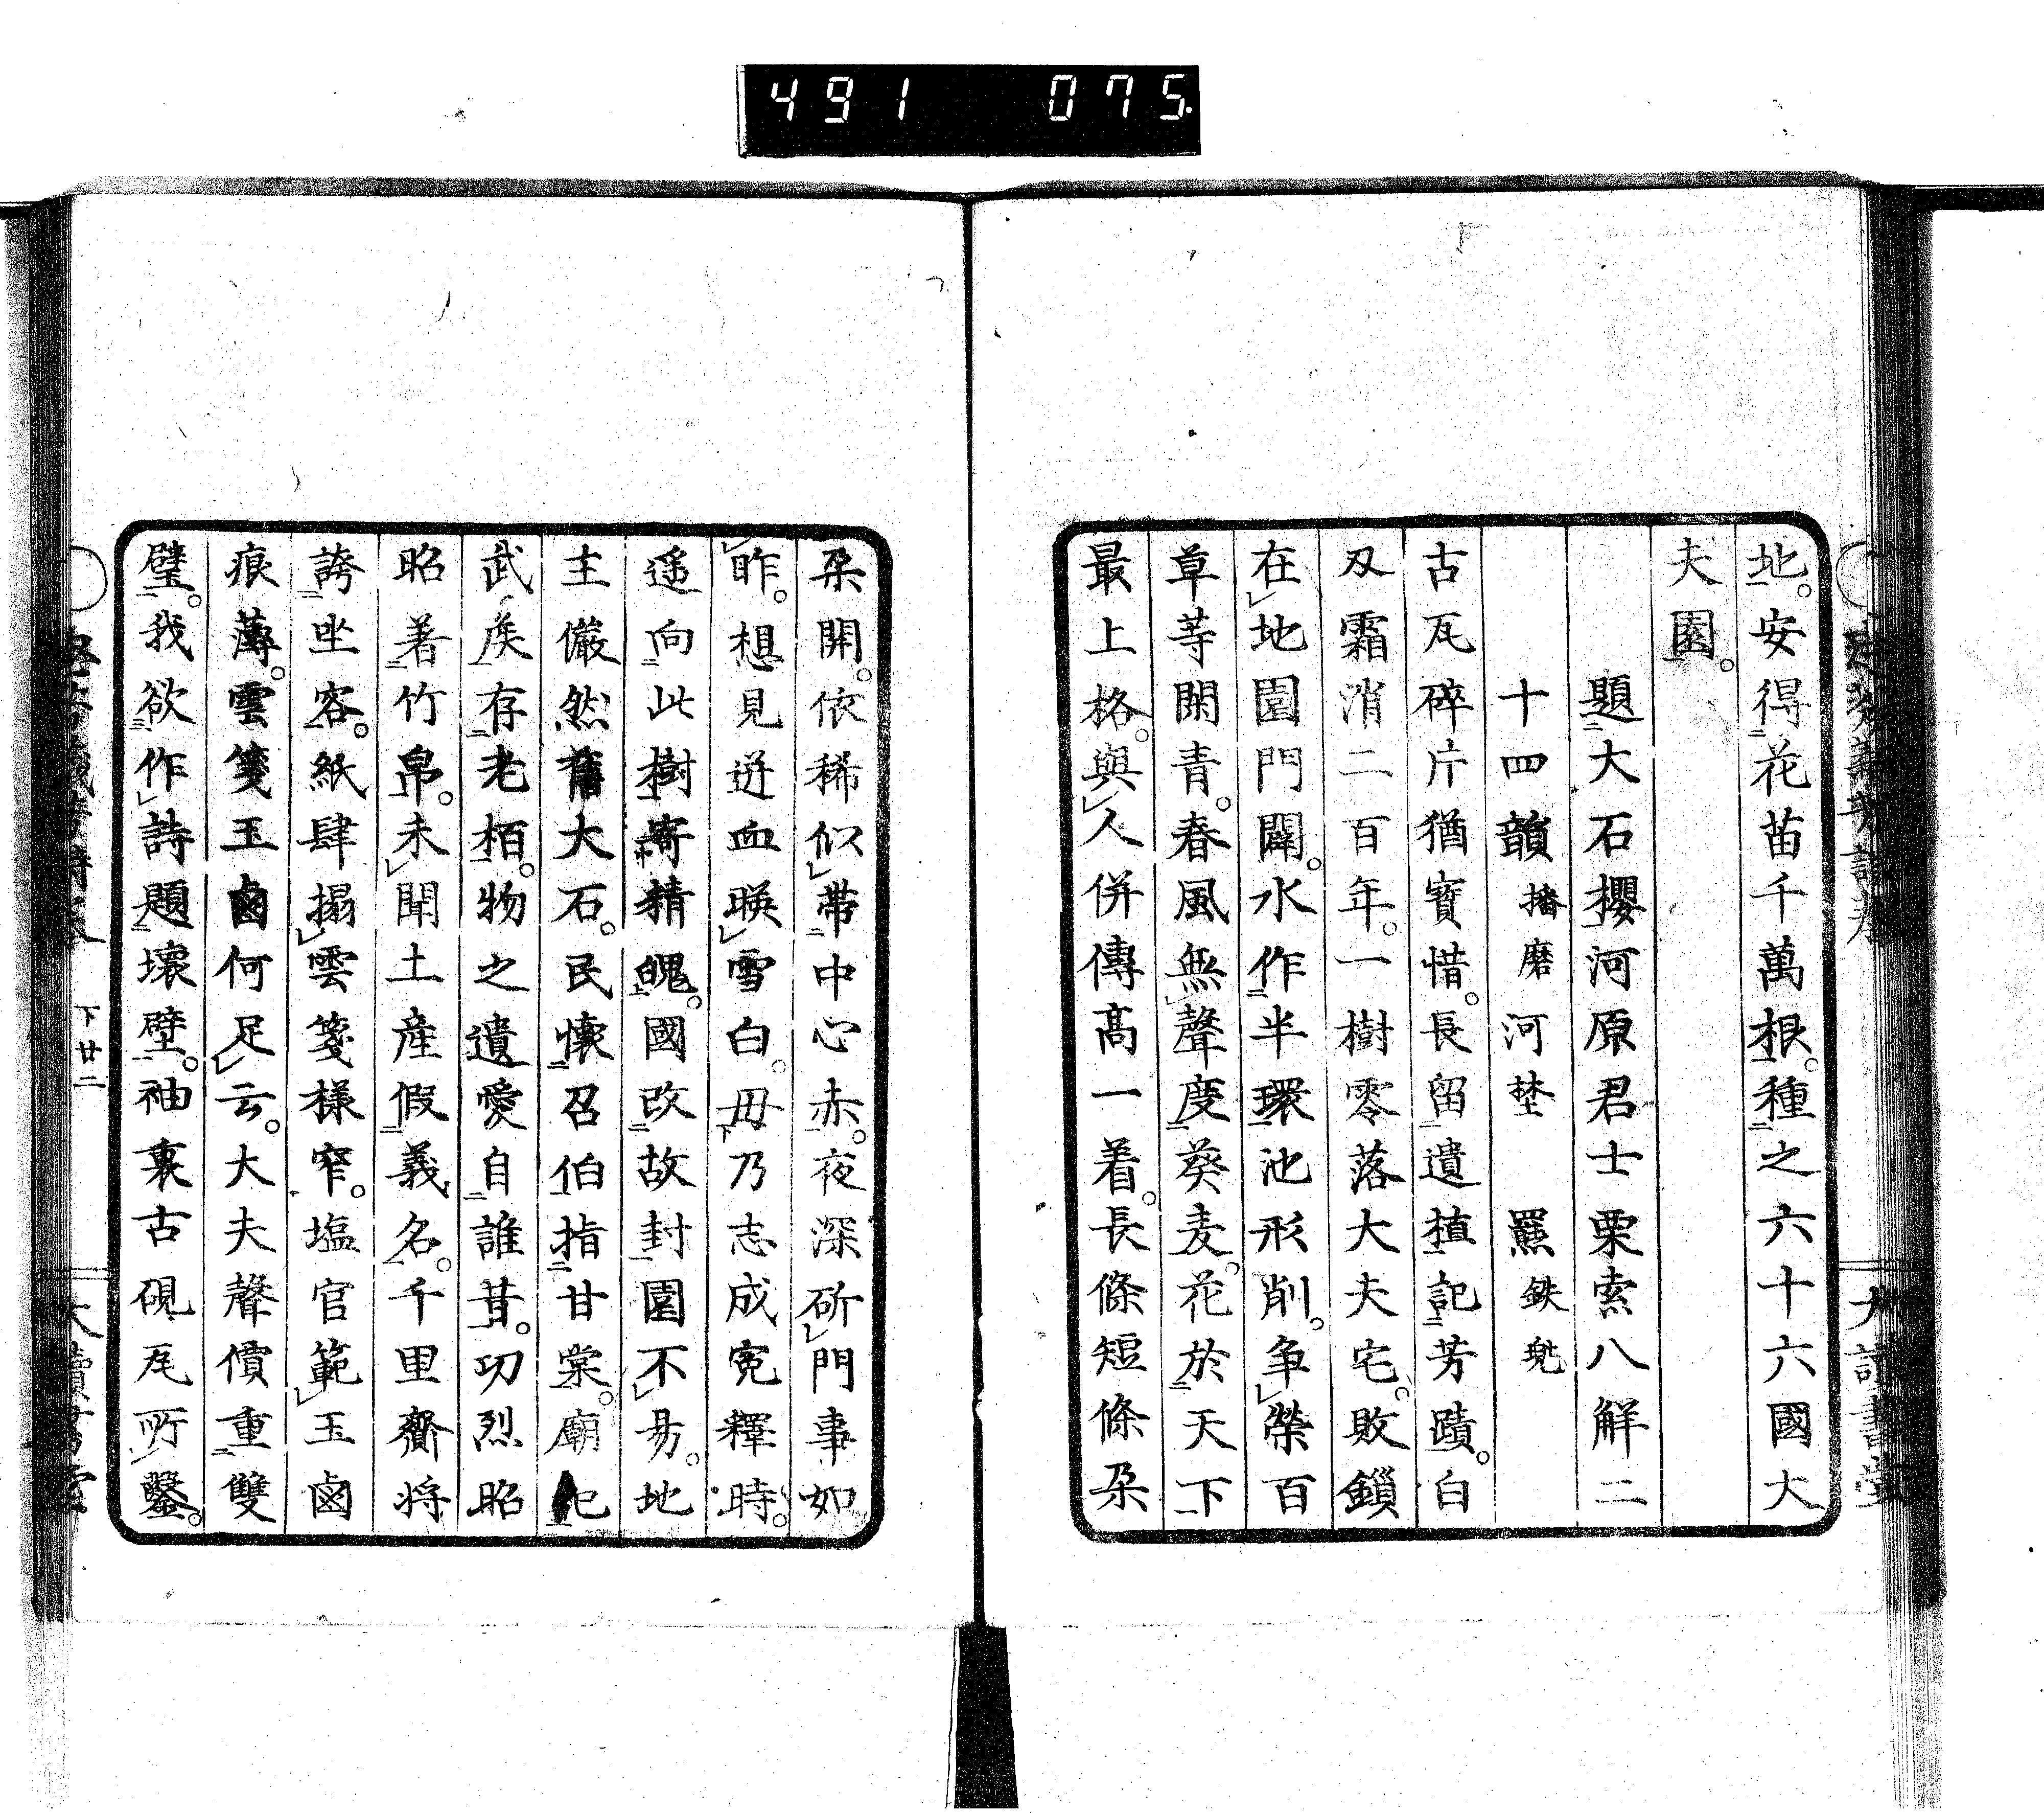 491 075
地。安得花苗千萬根。種之六十六國大
夫園。
題大石櫻河原君士栗索八解二
十四韻 播磨 河埜 羆 鉄兜
古瓦碎片猶寶惜。長留遺植記芳蹟。白
刄霜消二百年。一樹零落大夫宅。敗鎖
在地園門闢。水作半環池形削。争榮百
草等閑青。春風無聲度葵麦。花於天下
最上格。與人併傳高一着。長條短條朶
朶開。依稀似帶中心赤。夜深斫門事如
昨。想見迸血暎雪白。毋乃志成寃釋時。
遥向此樹寄精魄。國改故封園不易。地
主儼然舊大石。民懷召伯指甘棠。廟祀
武矦存老栢。物之遺愛自誰昔。功烈昭
昭著竹帛。未聞土産假義名。千里齎将
誇坐客。紙肆搨雲箋様窄。塩官範玉鹵
痕薄。雲箋玉鹵何足云。大夫聲價重雙
璧。我欲作詩題壊壁。袖裏古硯瓦所鑿。
下廿二